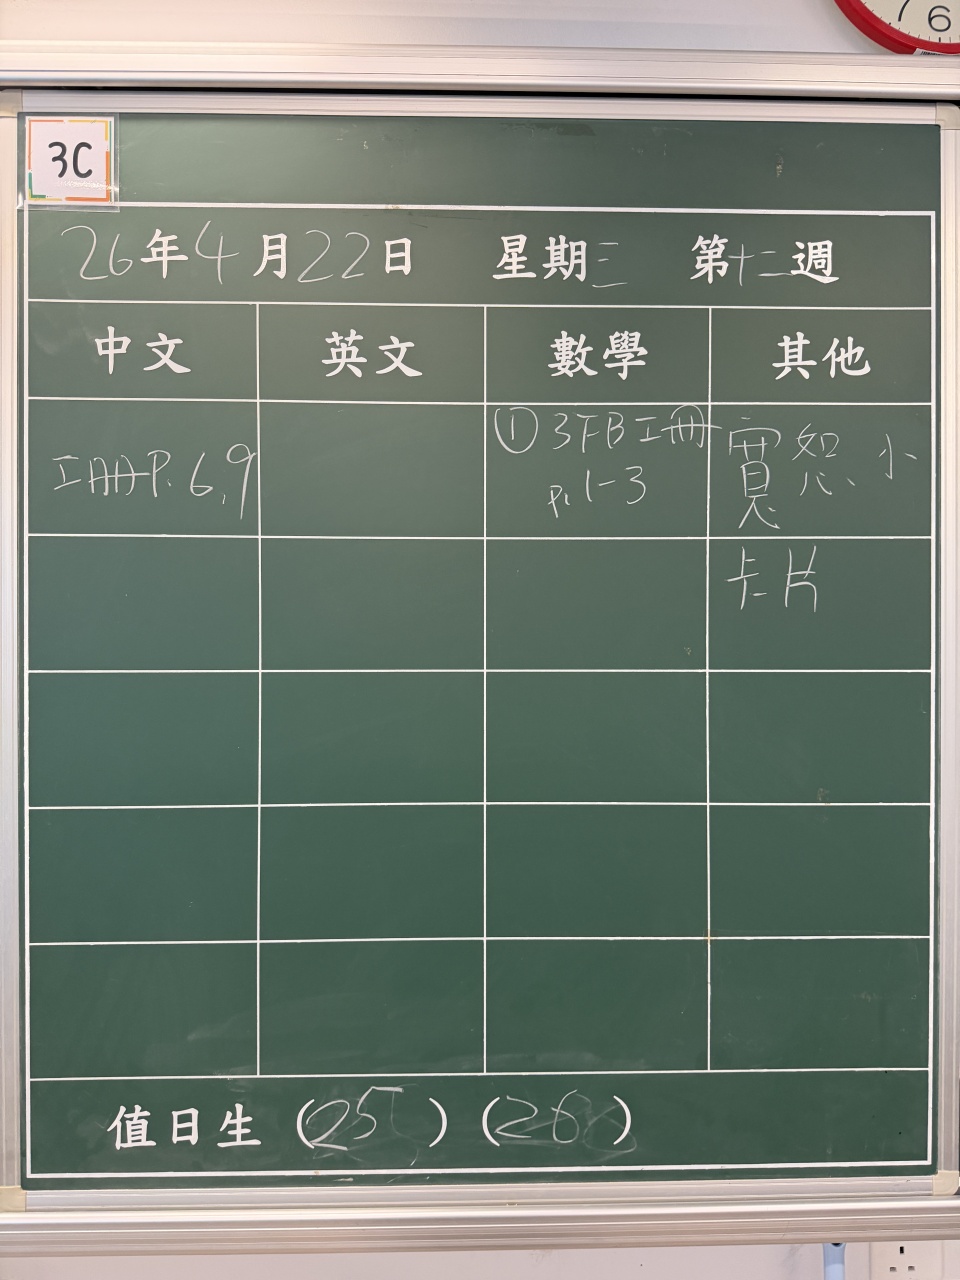 7 6
3C
26年4月22日 星期三 第十二週
中文 英文 數學 其他
工冊P.6,9
①3FB工冊
p.1-3
寬恕、小
卡片
值日生 (25) (26)